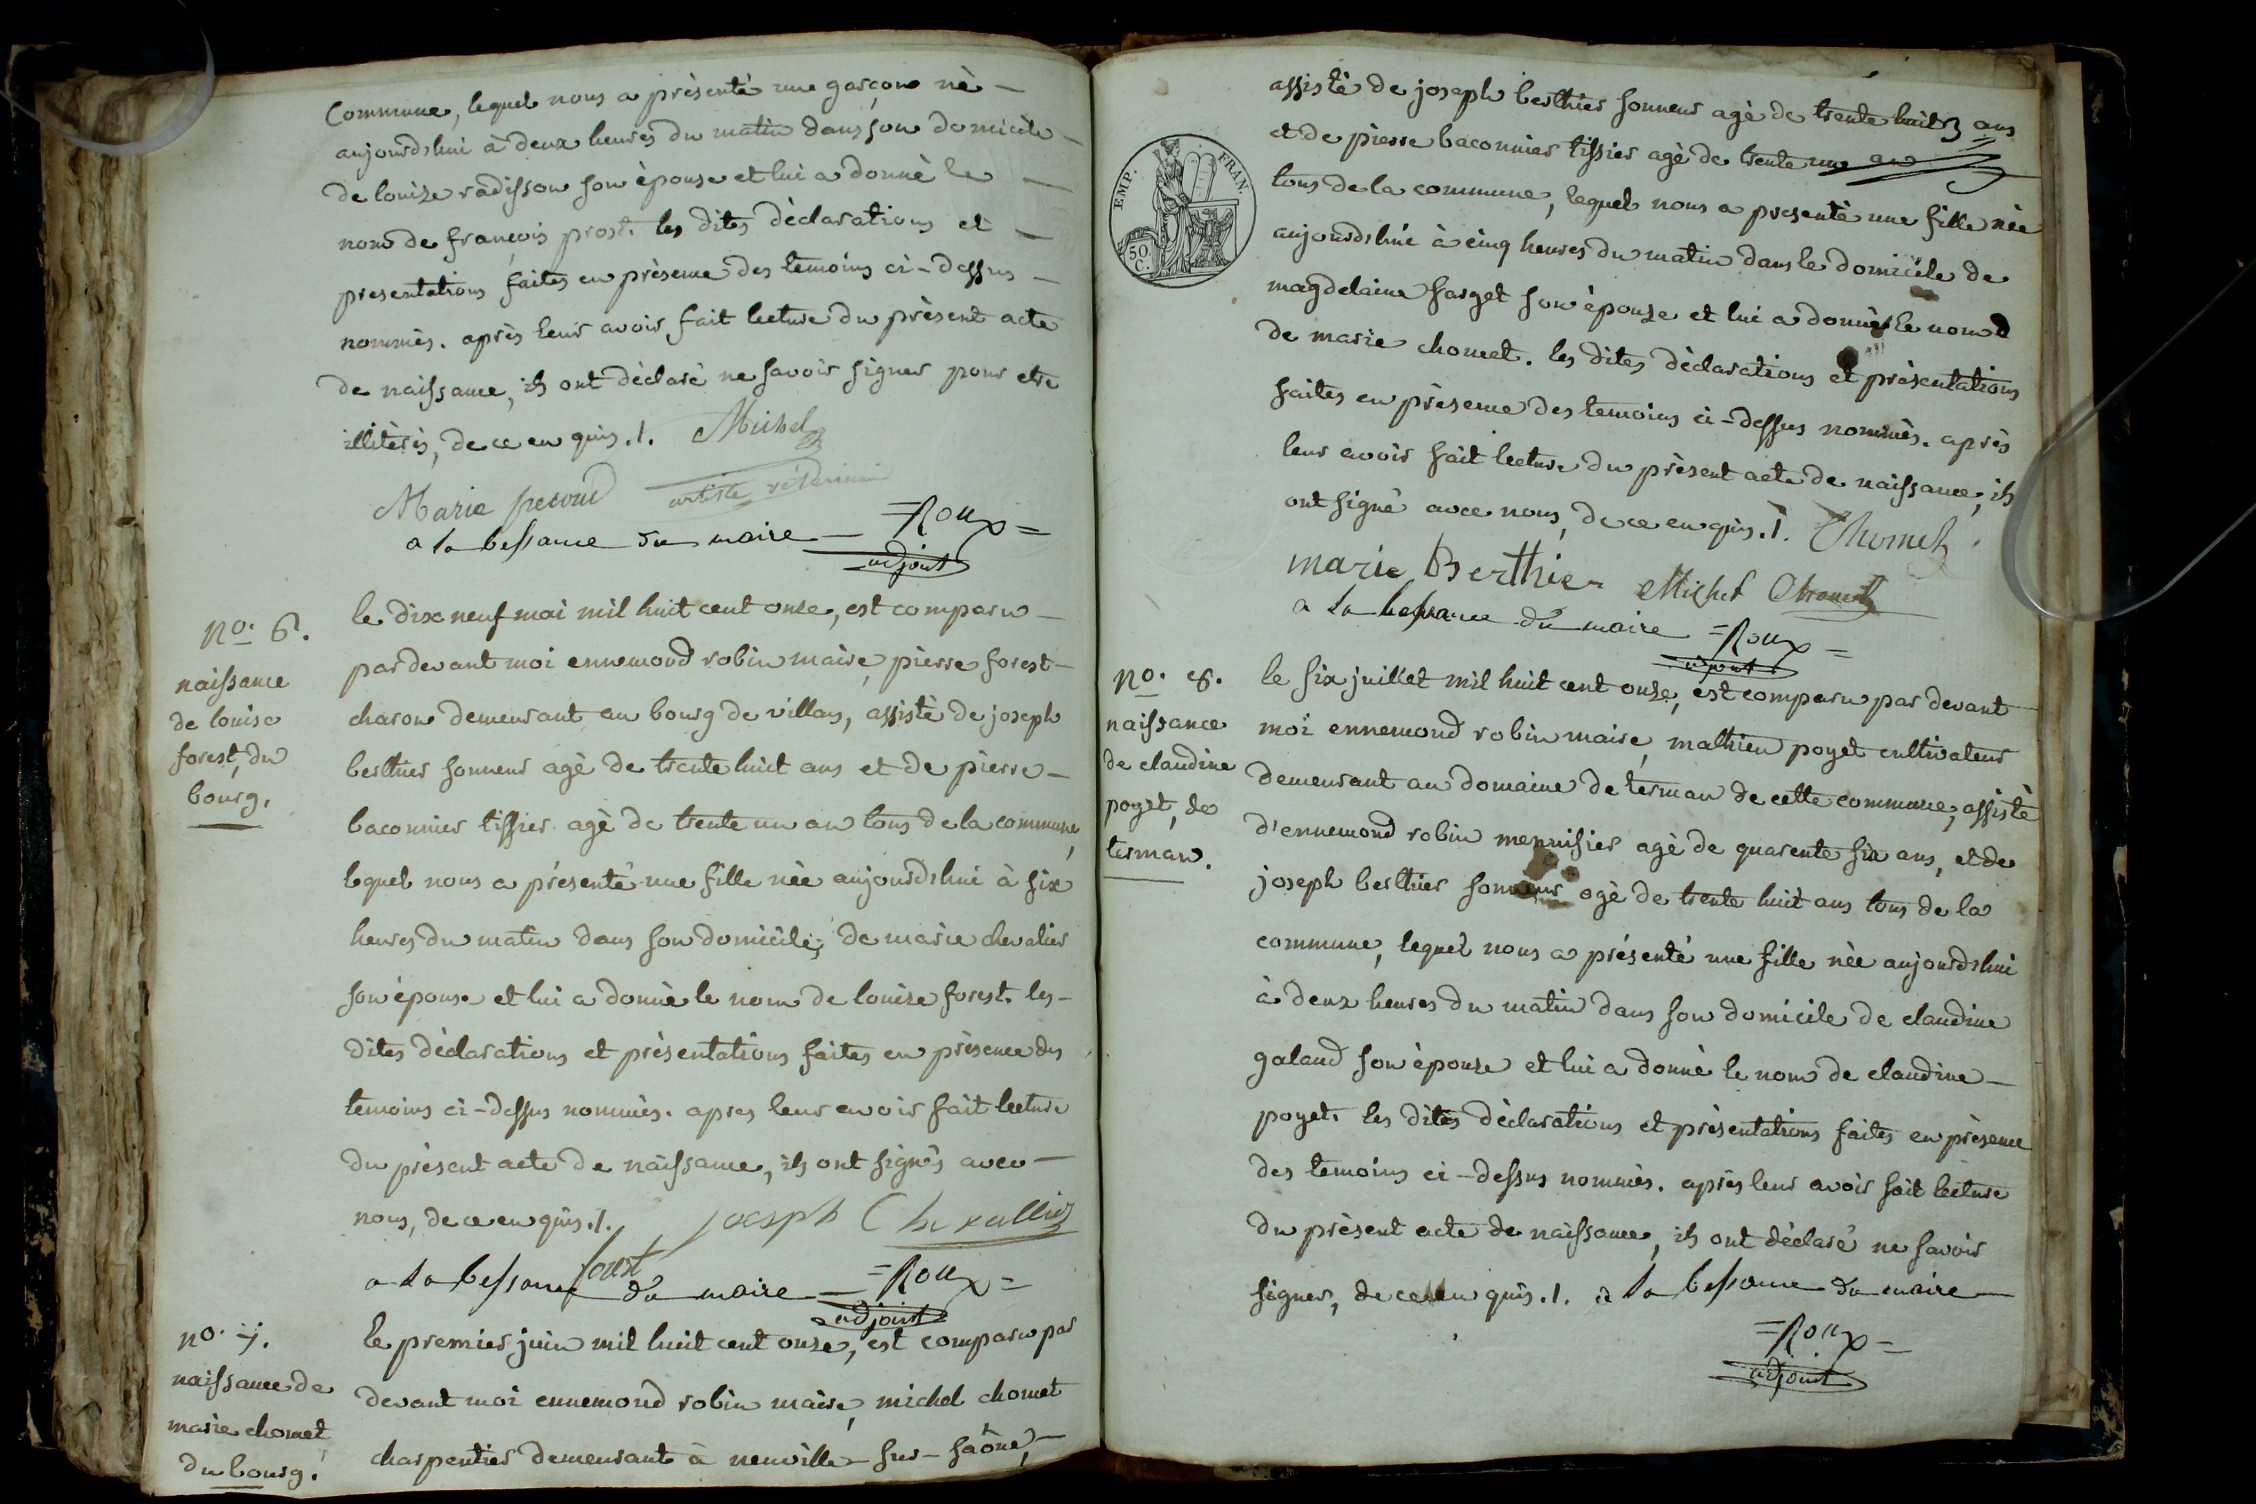 Commune, lequel nous a présenté une garçon nè —
aujourd'hui à deux heures du matin dans son domicile —
de louise radisson son épouse et lui a donnè le —
nom de françois prost. les dites dèclarations et —
presentations faites en prèsence des temoins ci-dessus —
nommès. après leur avoir fait lecture du prèsent acte
de naissance, ils ont dèclarè ne savoir signer pour etre
illitèrès, de ce enquis ./. Michel
Marie second artiste vétérinaire
a la bessance du maire — =Roux=
adjoint
no. 6.
naissance
de louise
forest, du
bourg.
le dix neuf mai mil huit cent onze, est comparu —
par devant moi ennemond robin maire, pierre forest —
charon demeurant au bourg de villars, assistè de joseph
berthier sonneur agè de trente huit ans et de pierre —
baconnier tissier agè de trente un an tous de la commune,
lequel nous a présenté une fille nèe aujourd'hui à six
heures du matin dans son domicile, de marie chevalier
son épouse et lui a donnè le nom de louise forest. les —
dites dèclarations et prèsentations faites en prèsence des
temoins ci-dessus nommès. apres leur avoir fait lecture
du prèsent acte de naissance, ils ont signès avec —
nous, de ce enquis ./. joesph Chevallier
forest
a la bessance du maire — =Roux=
adjoint
no. 7.
naissance de
marie chomet,
du bourg.
le premier juin mil huit cent onze, est comparu par
devant moi ennemond robin maire, michel chomet
charpentier demeurant à neuville-sur-saône, —
EMP. FRAN.
50
C.
assistè de joseph berthier sonneur agè de trente huit ans
et de pierre baconnier tissier agè de trente un an
tous de la commune, lequel nous a presentè une fille nèe
aujourd'hui à cinq heures du matin dans le domicile de
magdelaine farget son èpouse et lui a donnè le nom
de marie chomet. les dites dèclarations et prèsentations
faites en prèsence des temoins ci-dessus nommès. après
leur avoir fait lecture du prèsent acte de naissance, ils
ont signé avec nous, de ce enquis ./. Chomet
marie Berthier Michel Chomet
a la bessance du maire =Roux=
adjoint
no. 8.
naissance
de claudine
poyet, de
terman.
le six juillet mil huit cent onze, est comparu par devant
moi ennemond robin maire, mathieu poyet cultivateur
demeurant au domaine de terman de cette commune, assistè
d'ennemond robin menuisier agè de quarente six ans, et de
joseph berthier sonneur agè de trente huit ans tous de la
commune, lequel nous a présenté une fille nèe aujourd'hui
à deux heures du matin dans son domicile de claudine
galand son èpouse et lui a donnè le nom de claudine —
poyet. les dites dèclarations et prèsentations faites en prèsence
des temoins ci-dessus nommès. après leur avoir fait lecture
du prèsent acte de naissance, ils ont dèclaré ne savoir
signer, de ce enquis ./. a la bessance du maire —
=Roux=
adjoint